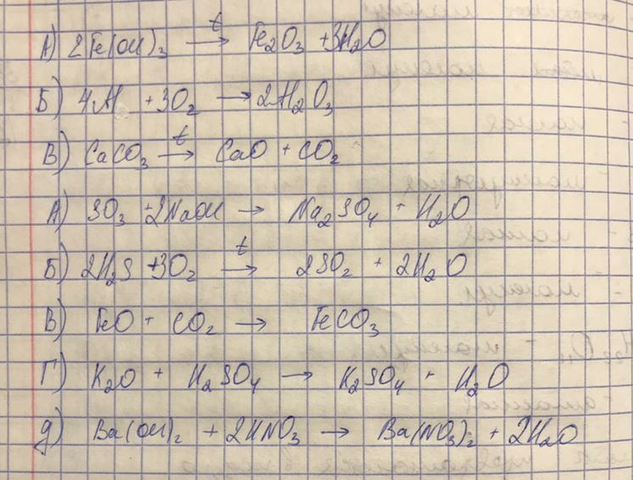 А) 2Fe(OH)₃ —t→ Fe₂O₃ + 3H₂O
Б) 4Al + 3O₂ → 2Al₂O₃
В) CaCO₃ —t→ CaO + CO₂
А) SO₃ + 2NaOH → Na₂SO₄ + H₂O
Б) 2H₂S + 3O₂ —t→ 2SO₂ + 2H₂O
В) FeO + CO₂ → FeCO₃
Г) K₂O + H₂SO₄ → K₂SO₄ + H₂O
Д) Ba(OH)₂ + 2HNO₃ → Ba(NO₃)₂ + 2H₂O